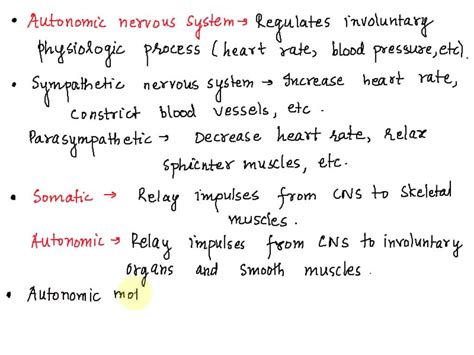 • Autonomic nervous system → Regulates involuntary
physiologic process (heart rate, blood pressure, etc).
• Sympathetic nervous system → Increase heart rate,
constrict blood vessels, etc.
Parasympathetic → Decrease heart rate, Relax
sphincter muscles, etc.
• Somatic → Relay impulses from CNS to skeletal
muscles.
Autonomic → Relay impulses from CNS to involuntary
organs and smooth muscles.
• Autonomic mot